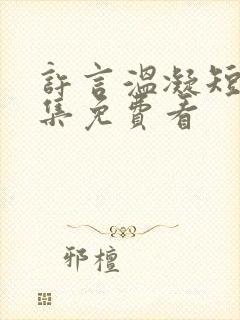 許言溫凝短
集免費看
邪檀